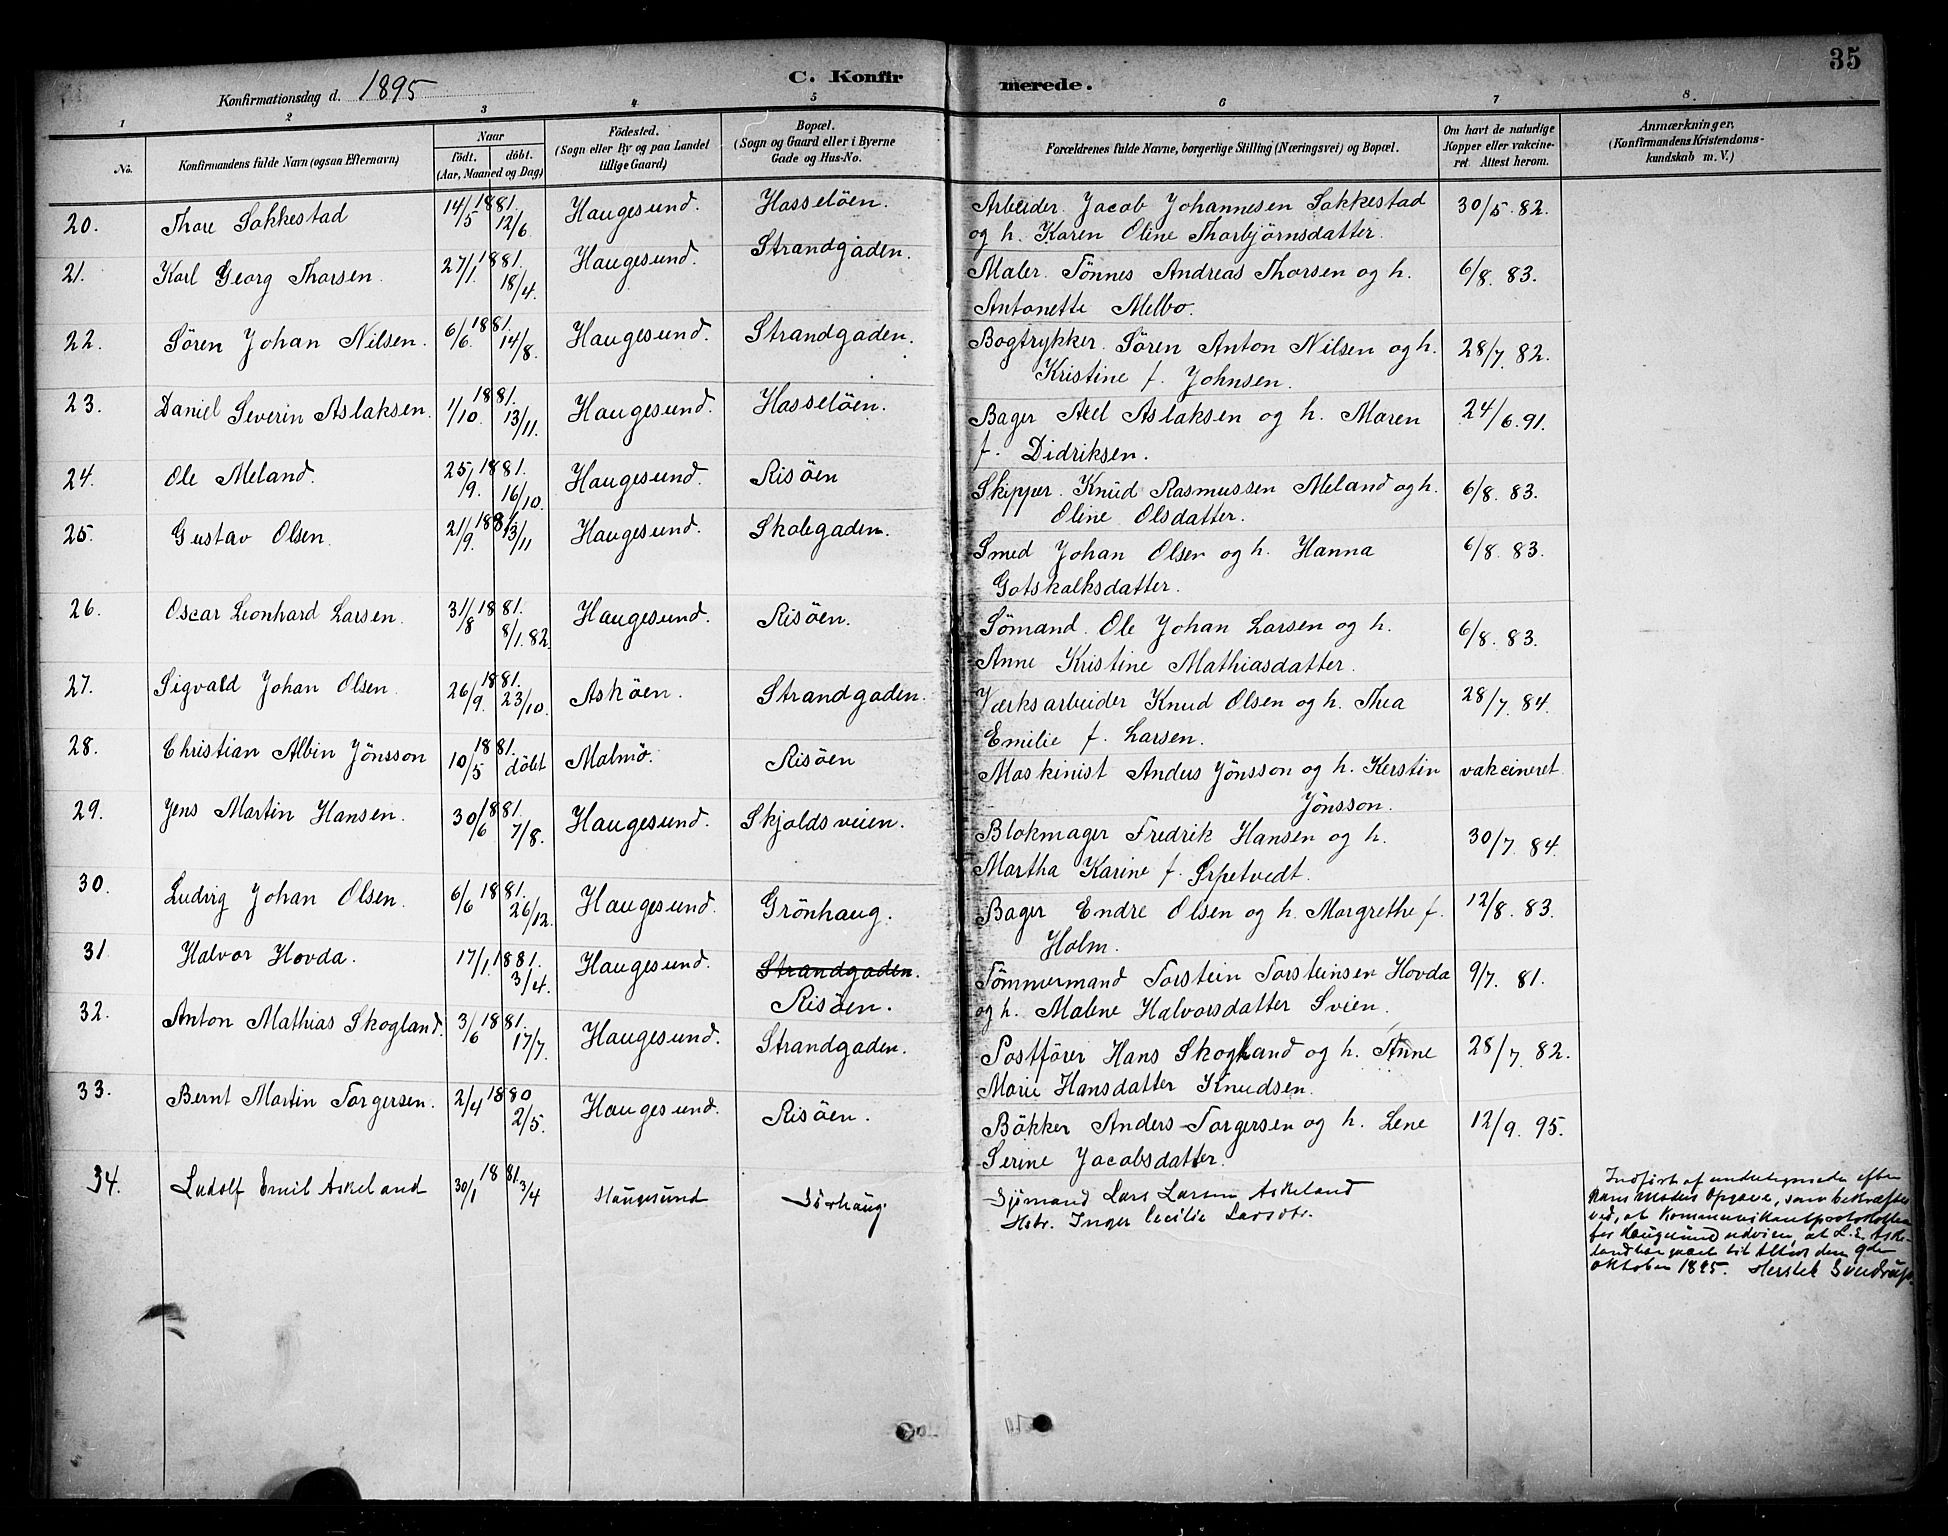 35
Konfirmationsdag d. 1895
C. Konfirmerede.
1 2 3 4 5 6 7 8.
No.
Konfirmandens fulde Navn (ogsaa Efternavn)
Naar
födt. döbt.
(Aar, Maaned og Dag)
Födested.
(Sogn eller By og paa Landet
tillige Gaard)
Bopæl.
(Sogn og Gaard eller i Byerne
Gade og Hus-No.
Forældrenes fulde Navne, borgerlige Stilling (Næringsvei) og Bopæl.
Om havt de naturlige
Kopper eller vakcine-
ret Attest herom.
Anmærkninger.
(Konfirmandens Kristendoms-
kundskab m. V.)
20. Thore Sakkestad 14/5 1881. 12/6. Haugesund. Hasselöen. Arbeider Jacob Johannesen Sakkestad 30/5. 82.
og h. Karen Oline Thorbjörnsdatter.
21. Karl Georg Thorsen. 27/1. 1881. 18/4. Haugesund. Strandgaden. Maler Tönnes Andreas Thorsen og h. 6/8. 83.
Antonette Melbo.
22. Sören Johan Nilsen. 6/6. 1881. 14/8. Haugesund. Strandgaden. Bogtrykker Sören Anton Nilsen og h. 28/7. 82.
Kristine f. Johnsen.
23. Daniel Severin Aslaksen. 1/10. 1881. 13/11. Haugesund. Hasselöen. Bager Axel Aslaksen og h. Maren 24/6. 91.
f. Didriksen.
24. Ole Meland. 25/9. 1881. 16/10. Haugesund. Risöen Skipper Knud Rasmussen Meland og h. 6/8. 83.
Oline Olsdatter.
25. Gustav Olsen. 21/9. 1881. 13/11 Haugesund. Skolegaden. Smed Johan Olsen og h. Hanna 6/8. 83.
Gotskalksdatter.
26. Oscar Leonhard Larsen. 31/8 1881. 8/1. 82. Haugesund. Risöen. Sömand Ole Johan Larsen og h. 6/8. 83.
Anne Kristine Mathiasdatter.
27. Sigvald Johan Olsen. 26/9. 1881. 23/10. Asköen. Strandgaden. Værksarbeider Knud Olsen og h. Thea 28/7. 84.
Emilie f. Larsen.
28. Christian Albin Jönsson 10/5 1881. döbt Malmö. Risöen Maskinist Anders Jönsson og h. Kerstin vakcineret
Jönsson.
29. Jens Martin Hansen. 30/6 1881. 7/8. Haugesund. Skjoldsveien. Blokmager Fredrik Hansen og h. 30/7. 84.
Martha Karine f.
30. Ludvig Johan Olsen. 6/6 1881. 26/12. Haugesund. Grönhaug. Bager Endre Olsen og h. Margrethe f. 12/8. 83.
Holm.
31. Halvor Hovda. 17/1. 1881. 3/4. Haugesund. Strandgaden. Tömmermand Torstein Torsteinsen Hovda 9/7. 81.
Risöen. og h. Malene Halvorsdatter Svien.
32. Anton Mathias Skogland. 3/6 1881. 17/7. Haugesund. Strandgaden. Postförer Hans Skogland og h. Anne 28/7. 82.
Marie Hansdatter Knudsen.
33. Bernt Martin Torgersen. 2/4 1880 2/5. Haugesund. Risöen. Bökker Anders Torgersen og h. Lene 12/9. 95.
Serine Jacobsdatter.
34. Ludolf Emil Askeland 30/1 1881. 3/4 Haugesund Sörhaug. Sjömand Lars Larsen Askeland
Hstr. Inger Cecilie Larsdtr.
Indfört af undertegnede efter
hans Moders Opgave, som bekræftes
ved, at Kommunikantprotokollen
for Haugesund udviser, at L. E. Aske-
land har været til Alters den 9de
oktober 1895.